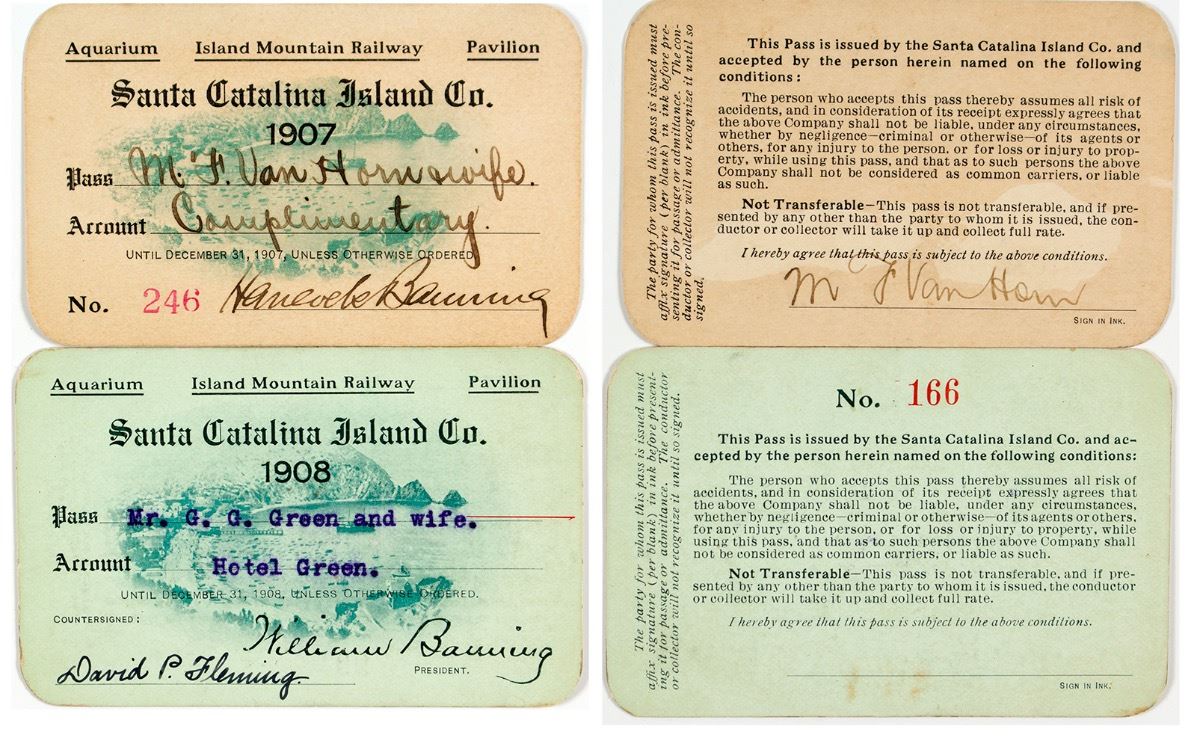 Aquarium Island Mountain Railway Pavilion
Santa Catalina Island Co.
1907
Pass M. F. Van Horn & wife.
Account Complimentary.
UNTIL DECEMBER 31, 1907, UNLESS OTHERWISE ORDERED
No. 246 Hancock Banning
The party for whom this pass is issued must
affix signature (per blank) in ink before pre-
senting it for passage or admittance. The con-
ductor or collector will not recognize it until so
signed.
This Pass is issued by the Santa Catalina Island Co. and
accepted by the person herein named on the following
conditions:
The person who accepts this pass thereby assumes all risk of
accidents, and in consideration of its receipt expressly agrees that
the above Company shall not be liable, under any circumstances,
whether by negligence—criminal or otherwise—of its agents or
others, for any injury to the person, or for loss or injury to prop-
erty, while using this pass, and that as to such persons the above
Company shall not be considered as common carriers, or liable
as such.
Not Transferable—This pass is not transferable, and if pre-
sented by any other than the party to whom it is issued, the con-
ductor or collector will take it up and collect full rate.
I hereby agree that this pass is subject to the above conditions.
M F Van Horn
SIGN IN INK.
Aquarium Island Mountain Railway Pavilion
Santa Catalina Island Co.
1908
Pass Mr. G. G. Green and wife.
Account Hotel Green.
UNTIL DECEMBER 31, 1908, UNLESS OTHERWISE ORDERED.
COUNTERSIGNED:
William Banning
David P. Fleming. PRESIDENT.
The party for whom this pass is issued must
affix signature (per blank) in ink before present-
ing it for passage or admittance. The conductor
or collector will not recognize it until so signed.
No. 166
This Pass is issued by the Santa Catalina Island Co. and ac-
cepted by the person herein named on the following conditions:
The person who accepts this pass thereby assumes all risk of
accidents, and in consideration of its receipt expressly agrees that
the above Company shall not be liable, under any circumstances,
whether by negligence—criminal or otherwise—of its agents or others,
for any injury to the person, or for loss or injury to property, while
using this pass, and that as to such persons the above Company shall
not be considered as common carriers, or liable as such.
Not Transferable—This pass is not transferable, and if pre-
sented by any other than the party to whom it is issued, the conductor
or collector will take it up and collect full rate.
I hereby agree that this pass is subject to the above conditions.
SIGN IN INK.